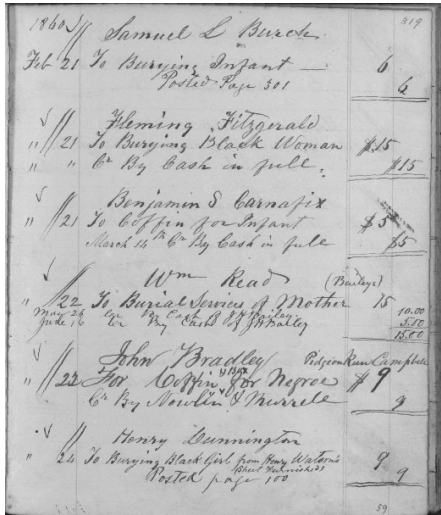 319
1860 Samuel L Burch
Feb 21 To Burying Infant — 6
Posted Page 301 6
Fleming Fitzgerald
" 21 To Burying Black Woman $15
" " Cr By Cash in full. $15
Benjamin S Carnafix
" 21 To Coffin for Infant $5
March 14th Cr By Cash in full $5
Wm Read (Baileys)
" 22 To Burial Services of Mother 15
May 26 Cr By Cash of J H Bailey 10.00
June 16 Cr By Cash of J H Bailey 5.00
15.00
John Bradley Pidgeon Run Campbell
" 22 For Coffin & Box for Negroe $9
Cr By Nowlin & Murrele 9
Henry Dunnington
" 24 To Burying Black Girl from Henry Watson's 9
Sheet Furnished
Posted page 100 9
59